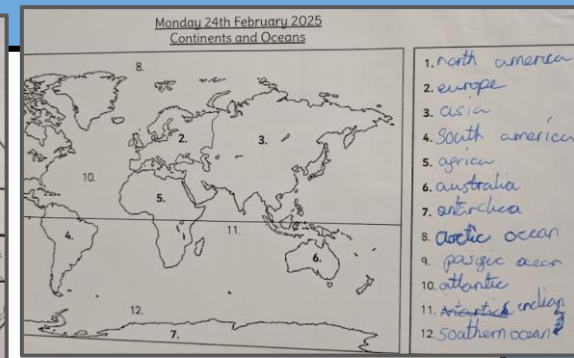 Monday 24th February 2025
Continents and Oceans
8.
2.
3.
10.
5.
11.
4.
6.
12.
7.
1. north america
2. europe
3. asia
4. South america
5. africa
6. australia
7. antarctica
8. arctic ocean
9. pasific ocean
10. atlantic
11. indian
12. Southern ocean